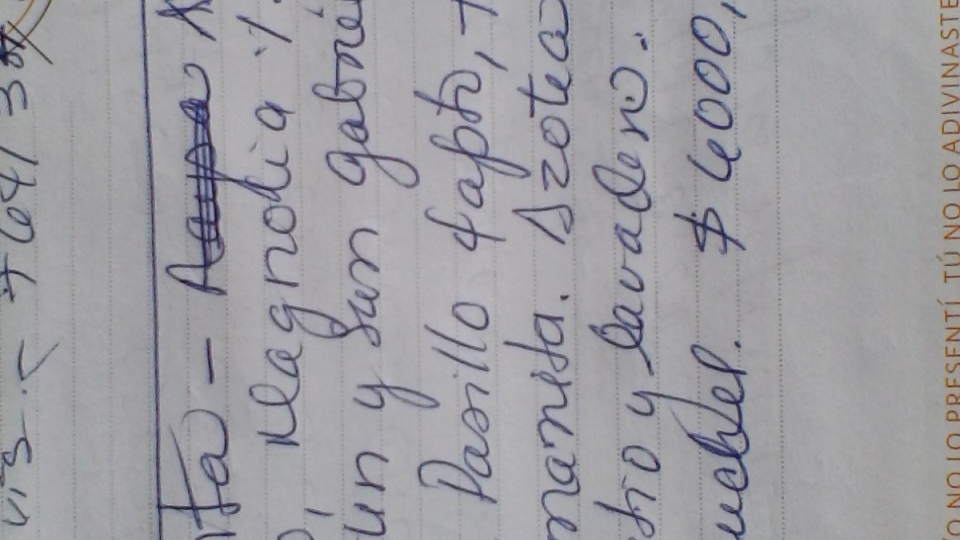 vis. 7641 3
Ta -
Magnolia %.
un y San Gabrie
Pasillo 4 apto, +
manesta. Azotea
trio y lavadero.
uebles. $ 4000,
O NO LO PRESENTÍ TÚ NO LO ADIVINASTE